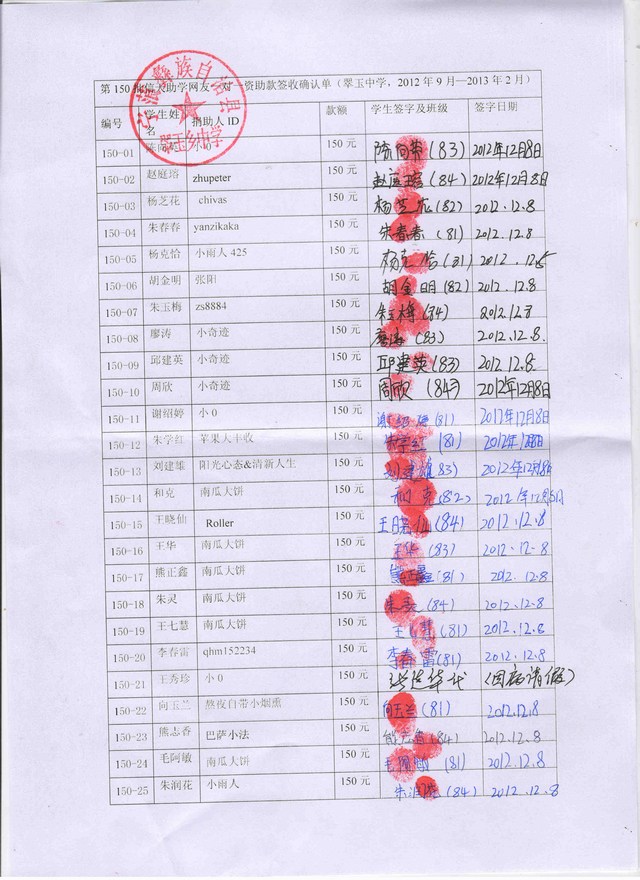 第150批信天助学网友一对一资助款签收确认单（翠玉中学，2012年9月—2013年2月）
宁蒗彝族自治县
翠玉乡中学
编号 学生姓名 捐助人ID 款额 学生签字及班级 签字日期
150-01 小0 150元 陈向荣(83) 2012年12月8日
150-02 赵庭瑢 zhupeter 150元 赵庭瑢(84) 2012年12月8日
150-03 杨芝花 chivas 150元 杨芝花(82) 2012.12.8
150-04 朱春春 yanzikaka 150元 朱春春(81) 2012.12.8
150-05 杨克恰 小雨人425 150元 杨克恰(81) 2012.12.8
150-06 胡金明 张阳 150元 胡金明(82) 2012.12.8
150-07 朱玉梅 zs8884 150元 朱玉梅(84) 2012.12.8
150-08 廖涛 小奇迹 150元 廖涛(83) 2012.12.8.
150-09 邱建英 小奇迹 150元 邱建英(83) 2012.12.8.
150-10 周欣 小奇迹 150元 周欣(84) 2012年12月8日
150-11 谢绍婷 小0 150元 谢绍婷(81) 2012年12月8日
150-12 朱学红 苹果大丰收 150元 朱学红(81) 2012年
150-13 刘建雄 阳光心态&清新人生 150元 刘建雄83) 2012年12月8日
150-14 和克 南瓜大饼 150元 和克(82) 2012年12月8日
150-15 王晓仙 Roller 150元 王晓仙(84) 2012.12.8
150-16 王华 南瓜大饼 150元 王华(83) 2012.12.8
150-17 熊正鑫 南瓜大饼 150元 熊正鑫(81) 2012.12.8
150-18 朱灵 南瓜大饼 150元 朱灵(84) 2012.12.8
150-19 王七慧 南瓜大饼 150元 王七慧(81) 2012.12.8
150-20 李春雷 qhm152234 150元 李春雷(81) 2012.12.8
150-21 王秀珍 小0 150元 (因病请假)
150-22 向玉兰 熬夜自带小烟熏 150元 向玉兰(81) 2012.12.8
150-23 熊志香 巴萨小法 150元 熊志香(84) 2012.12.8
150-24 毛阿敏 南瓜大饼 150元 毛阿敏(81) 2012.12.8
150-25 朱润花 小雨人 150元 朱润花(84) 2012.12.8